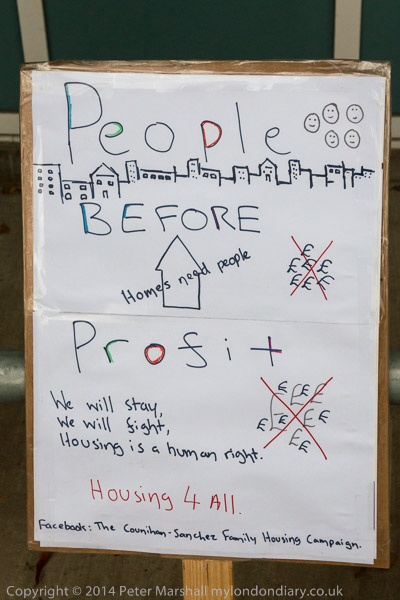 People
BEFORE
Homes need people
£
£ £
£ £
£ £ £
Profit
We will stay,
We will fight,
Housing is a human right.
£ £ £
£ £ £
£ £ £
£ £
Housing 4 All.
Facebook: The Counihan-Sanchez Family Housing Campaign.
Copyright © 2014 Peter Marshall mylondondiary.co.uk